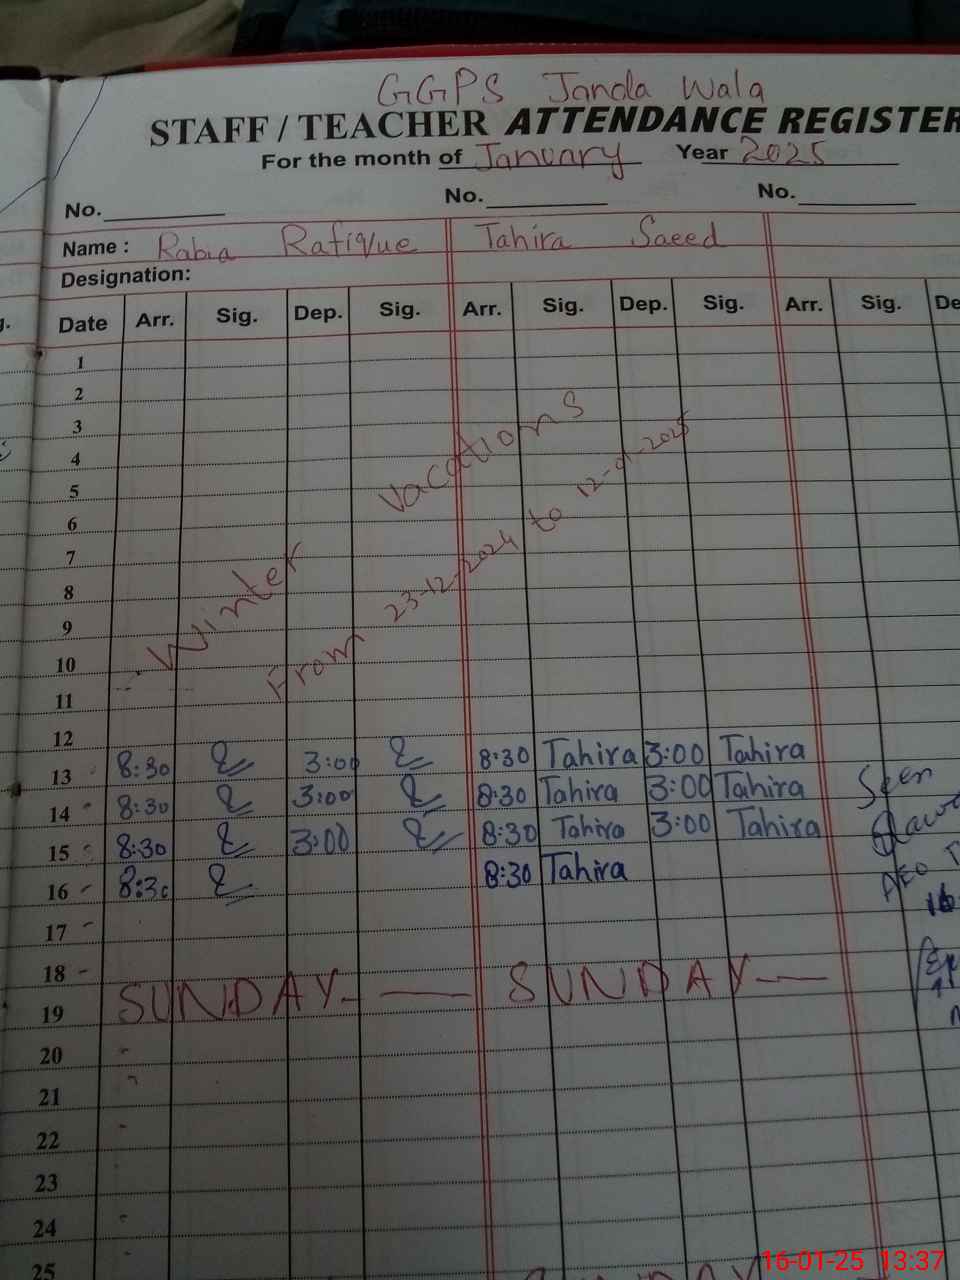 GGPS Janda Wala
STAFF / TEACHER ATTENDANCE REGISTER
For the month of January Year 2025
No. No. No.
Name : Rabia Rafique Tahira Saeed
Designation:
Date Arr. Sig. Dep. Sig. Arr. Sig. Dep. Sig. Arr. Sig. De
1
2
3
4
5
6
7
8
9
10
11
12
Winter Vacations
From 23-12-2024 to 12-01-2025
13 8:30 3:00 8:30 Tahira 3:00 Tahira
14 8:30 3:00 8:30 Tahira 3:00 Tahira
15 8:30 3:00 8:30 Tahira 3:00 Tahira
16 8:30 8:30 Tahira
Seen
AEO
16
17
18
19 SUNDAY SUNDAY
20
21
22
23
24
25
16-01-25 13:37